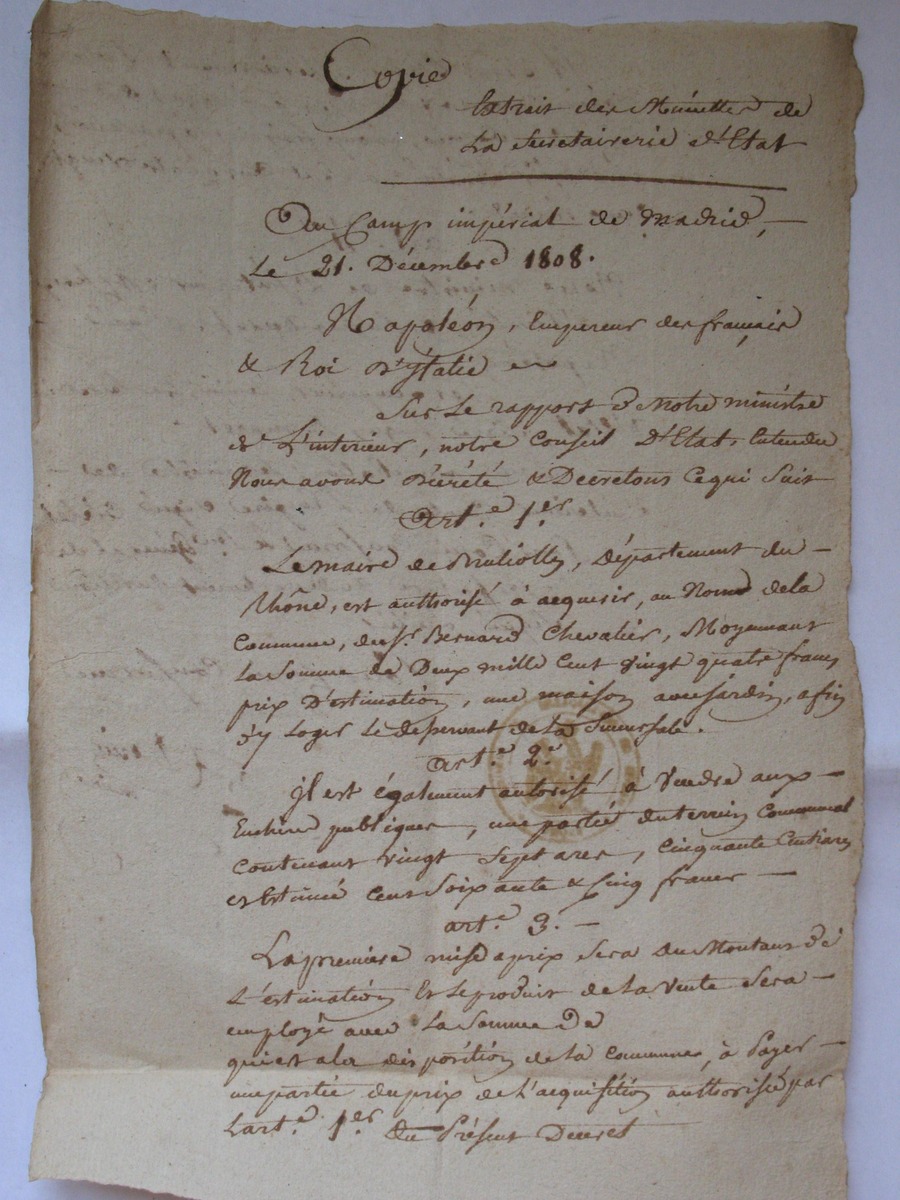 Copie
Extrait des Minuttes de
La Secretairerie d'Etat
Du Camp impérial de Madrid,
Le 21. Décembre 1808.
Napoléon, Empereur des français
& Roi D'ÿtalie
Sur Le rapport de Notre ministre
de L'interieur, notre Conseil D'Etat Entendu
Nous avons Décrété & Decretons Ce qui Suit
Art.e 1.er
Le maire de Bruliolles, Département du
Rhône, est authorisé à acquerir, au Nom de la
Commune, du S.r Bernard Chevalier, Moyennant
La Somme de Deux mille Cent vingt quatre francs
prix D'estimation, une maison avec Jardin, afin
d'y Loger Le desservant de La Succursale.
art.e 2.e
Il est également autorisé à Vendre aux
Enchères publiques, une partie du terrein Communal
Contenant vingt Sept ares, Cinquante Centiares
estimé Cent Soixante & Cinq francs
art.e 3.
La premiere mise a prix Sera du Montant de
L'estimation Et le produit de La Vente Sera
employé avec La Somme De
qui est a la disposition de La Commune, à Payer
une partie du prix de L'acquisition authorisée par
L'art.e 1.er du Présent Decret